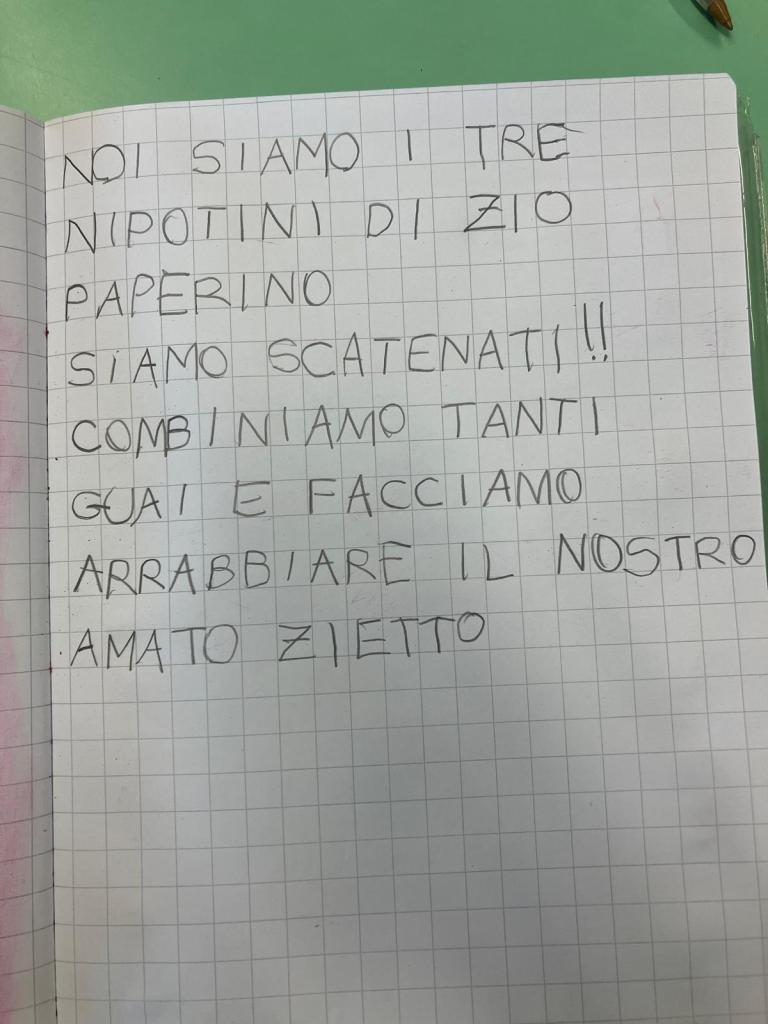 NOI SIAMO I TRE
NIPOTINI DI ZIO
PAPERINO
SIAMO SCATENATI!!
COMBINIAMO TANTI
GUAI E FACCIAMO
ARRABBIARE IL NOSTRO
AMATO ZIETTO